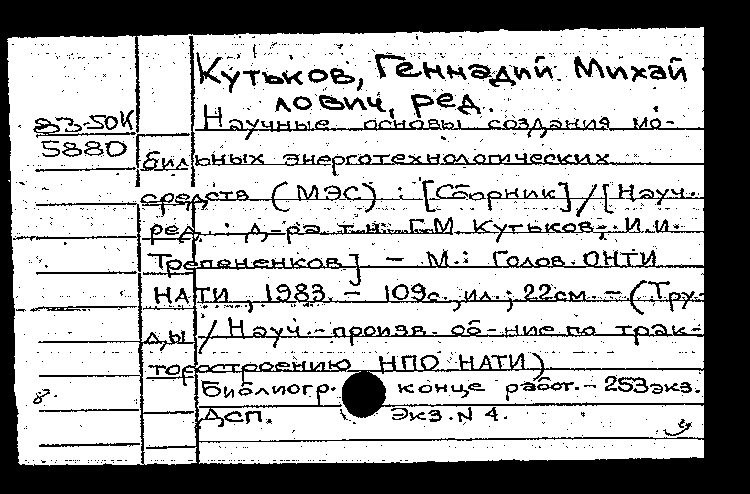 Кутьков, Геннадий Михай
лович, ред.
83-50К Научные основы создания мо-
5880 бильных энерготехнологических
средств (МЭС) : [Сборник] / [Науч.
ред. : д-ра т.н. Г.М. Кутьков, И.И.
Трепененков] – М.: Голов. ОНТИ
НАТИ, 1983. – 109с., ил.; 22см. – (Тру-
ды / Науч.-произв. об-ние по трак-
торостроению НПО НАТИ)
Библиогр. конце работ. – 253экз.
Дсп. Экз. N 4.